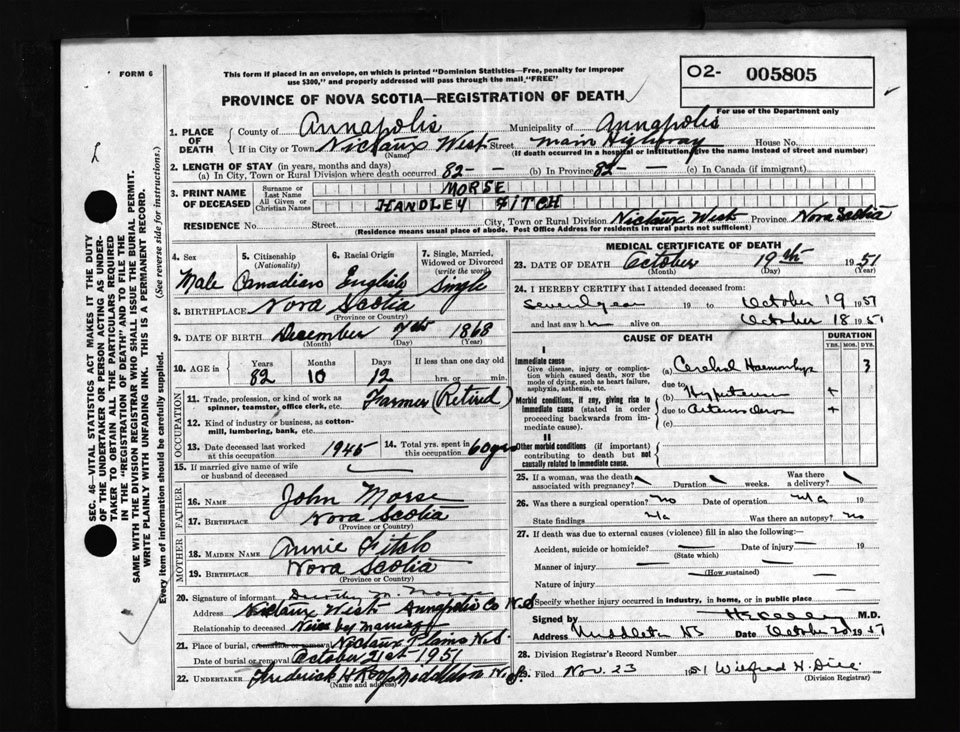 FORM 6
This form if placed in an envelope, on which is printed "Dominion Statistics—Free, penalty for improper
use $300," and properly addressed will pass through the mail "FREE"
O2- 005805
For use of the Department only
PROVINCE OF NOVA SCOTIA—REGISTRATION OF DEATH
SEC. 46—VITAL STATISTICS ACT MAKES IT THE DUTY
OF THE UNDERTAKER OR PERSON ACTING AS UNDER-
TAKER TO OBTAIN ALL THE PARTICULARS REQUIRED
IN THE "REGISTRATION OF DEATH" AND TO FILE THE
SAME WITH THE DIVISION REGISTRAR WHO SHALL ISSUE THE BURIAL PERMIT.
WRITE PLAINLY WITH UNFADING INK. THIS IS A PERMANENT RECORD.
Every item of information should be carefully supplied. (See reverse side for instructions.)
1. PLACE OF DEATH
County of Annapolis Municipality of Annapolis
If in City or Town Nictaux West Street Main Highway House No.
(Name) (If death occurred in a hospital or institution, give the name instead of street and number)
2. LENGTH OF STAY (in years, months and days)
(a) In City, Town or Rural Division where death occurred 82 - - (b) In Province 82 - - (c) In Canada (if immigrant)
3. PRINT NAME OF DECEASED
Surname or Last Name MORSE
All Given or Christian Names HANDLEY FITCH
RESIDENCE No. Street City, Town or Rural Division Nictaux West Province Nova Scotia
(Residence means usual place of abode. Post Office Address for residents in rural parts not sufficient)
4. Sex Male
5. Citizenship (Nationality) Canadian
6. Racial Origin English
7. Single, Married, Widowed or Divorced (write the word) Single
8. BIRTHPLACE Nova Scotia
(Province or Country)
9. DATE OF BIRTH December 7th 1868
(Month) (Day) (Year)
10. AGE in Years Months Days If less than one day old
82 10 12 hrs. or min.
OCCUPATION
11. Trade, profession, or kind of work as
spinner, teamster, office clerk, etc. Farmer (Retired)
12. Kind of industry or business, as cotton-
mill, lumbering, bank, etc.
13. Date deceased last worked
at this occupation 1945
14. Total yrs. spent in
this occupation 60 yrs
15. If married give name of wife
or husband of deceased
FATHER
16. NAME John Morse
17. BIRTHPLACE Nova Scotia
(Province or Country)
MOTHER
18. MAIDEN NAME Annie Fitch
19. BIRTHPLACE Nova Scotia
(Province or Country)
20. Signature of informant Dorothy M. Morse
Address Nictaux West Annapolis Co N.S
Relationship to deceased Niece by marriage
21. Place of burial, cremation or removal Nictaux Plains N.S.
Date of burial or removal October 21st 1951
22. UNDERTAKER Frederick H Roop Middleton N.S.
(Name and address)
MEDICAL CERTIFICATE OF DEATH
23. DATE OF DEATH October 19th 1951
(Month) (Day) (Year)
24. I HEREBY CERTIFY that I attended deceased from:
several years 19 to October 19 1951
and last saw him alive on October 18 1951
CAUSE OF DEATH
DURATION
YRS. MOS. DYS.
I
Immediate cause
Give disease, injury or complication which caused death, NOT the mode of dying, such as heart failure, asphyxia, asthenia, etc.
(a) Cerebral Haemorrhage 3
due to
(b) Hypertension +
Morbid conditions, if any, giving rise to immediate cause (stated in order proceeding backwards from immediate cause).
due to +
(c)
II
Other morbid conditions (if important) contributing to death but not causally related to immediate cause.
25. If a woman, was the death associated with pregnancy? Duration weeks. Was there a delivery?
26. Was there a surgical operation? no Date of operation n/a 19
State findings n/a Was there an autopsy? no
27. If death was due to external causes (violence) fill in also the following:—
Accident, suicide or homicide? Date of injury 19
(State which)
Manner of injury
(How sustained)
Nature of injury
Specify whether injury occurred in industry, in home, or in public place
Signed by M.D.
Address Middleton NS Date October 20 1951
28. Division Registrar's Record Number
29. Filed Nov. 23 1951
(Division Registrar)